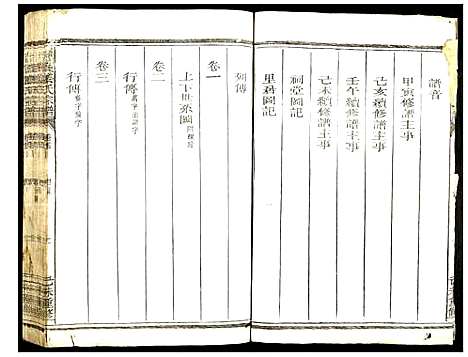 譜音
甲寅修譜主事
己亥續修譜主事
壬午續修譜主事
己未續修譜主事
祠堂圖記
里居圖記
列傳
卷一
上下世系圖
卷二
行傳
卷三
行傳
己未重修